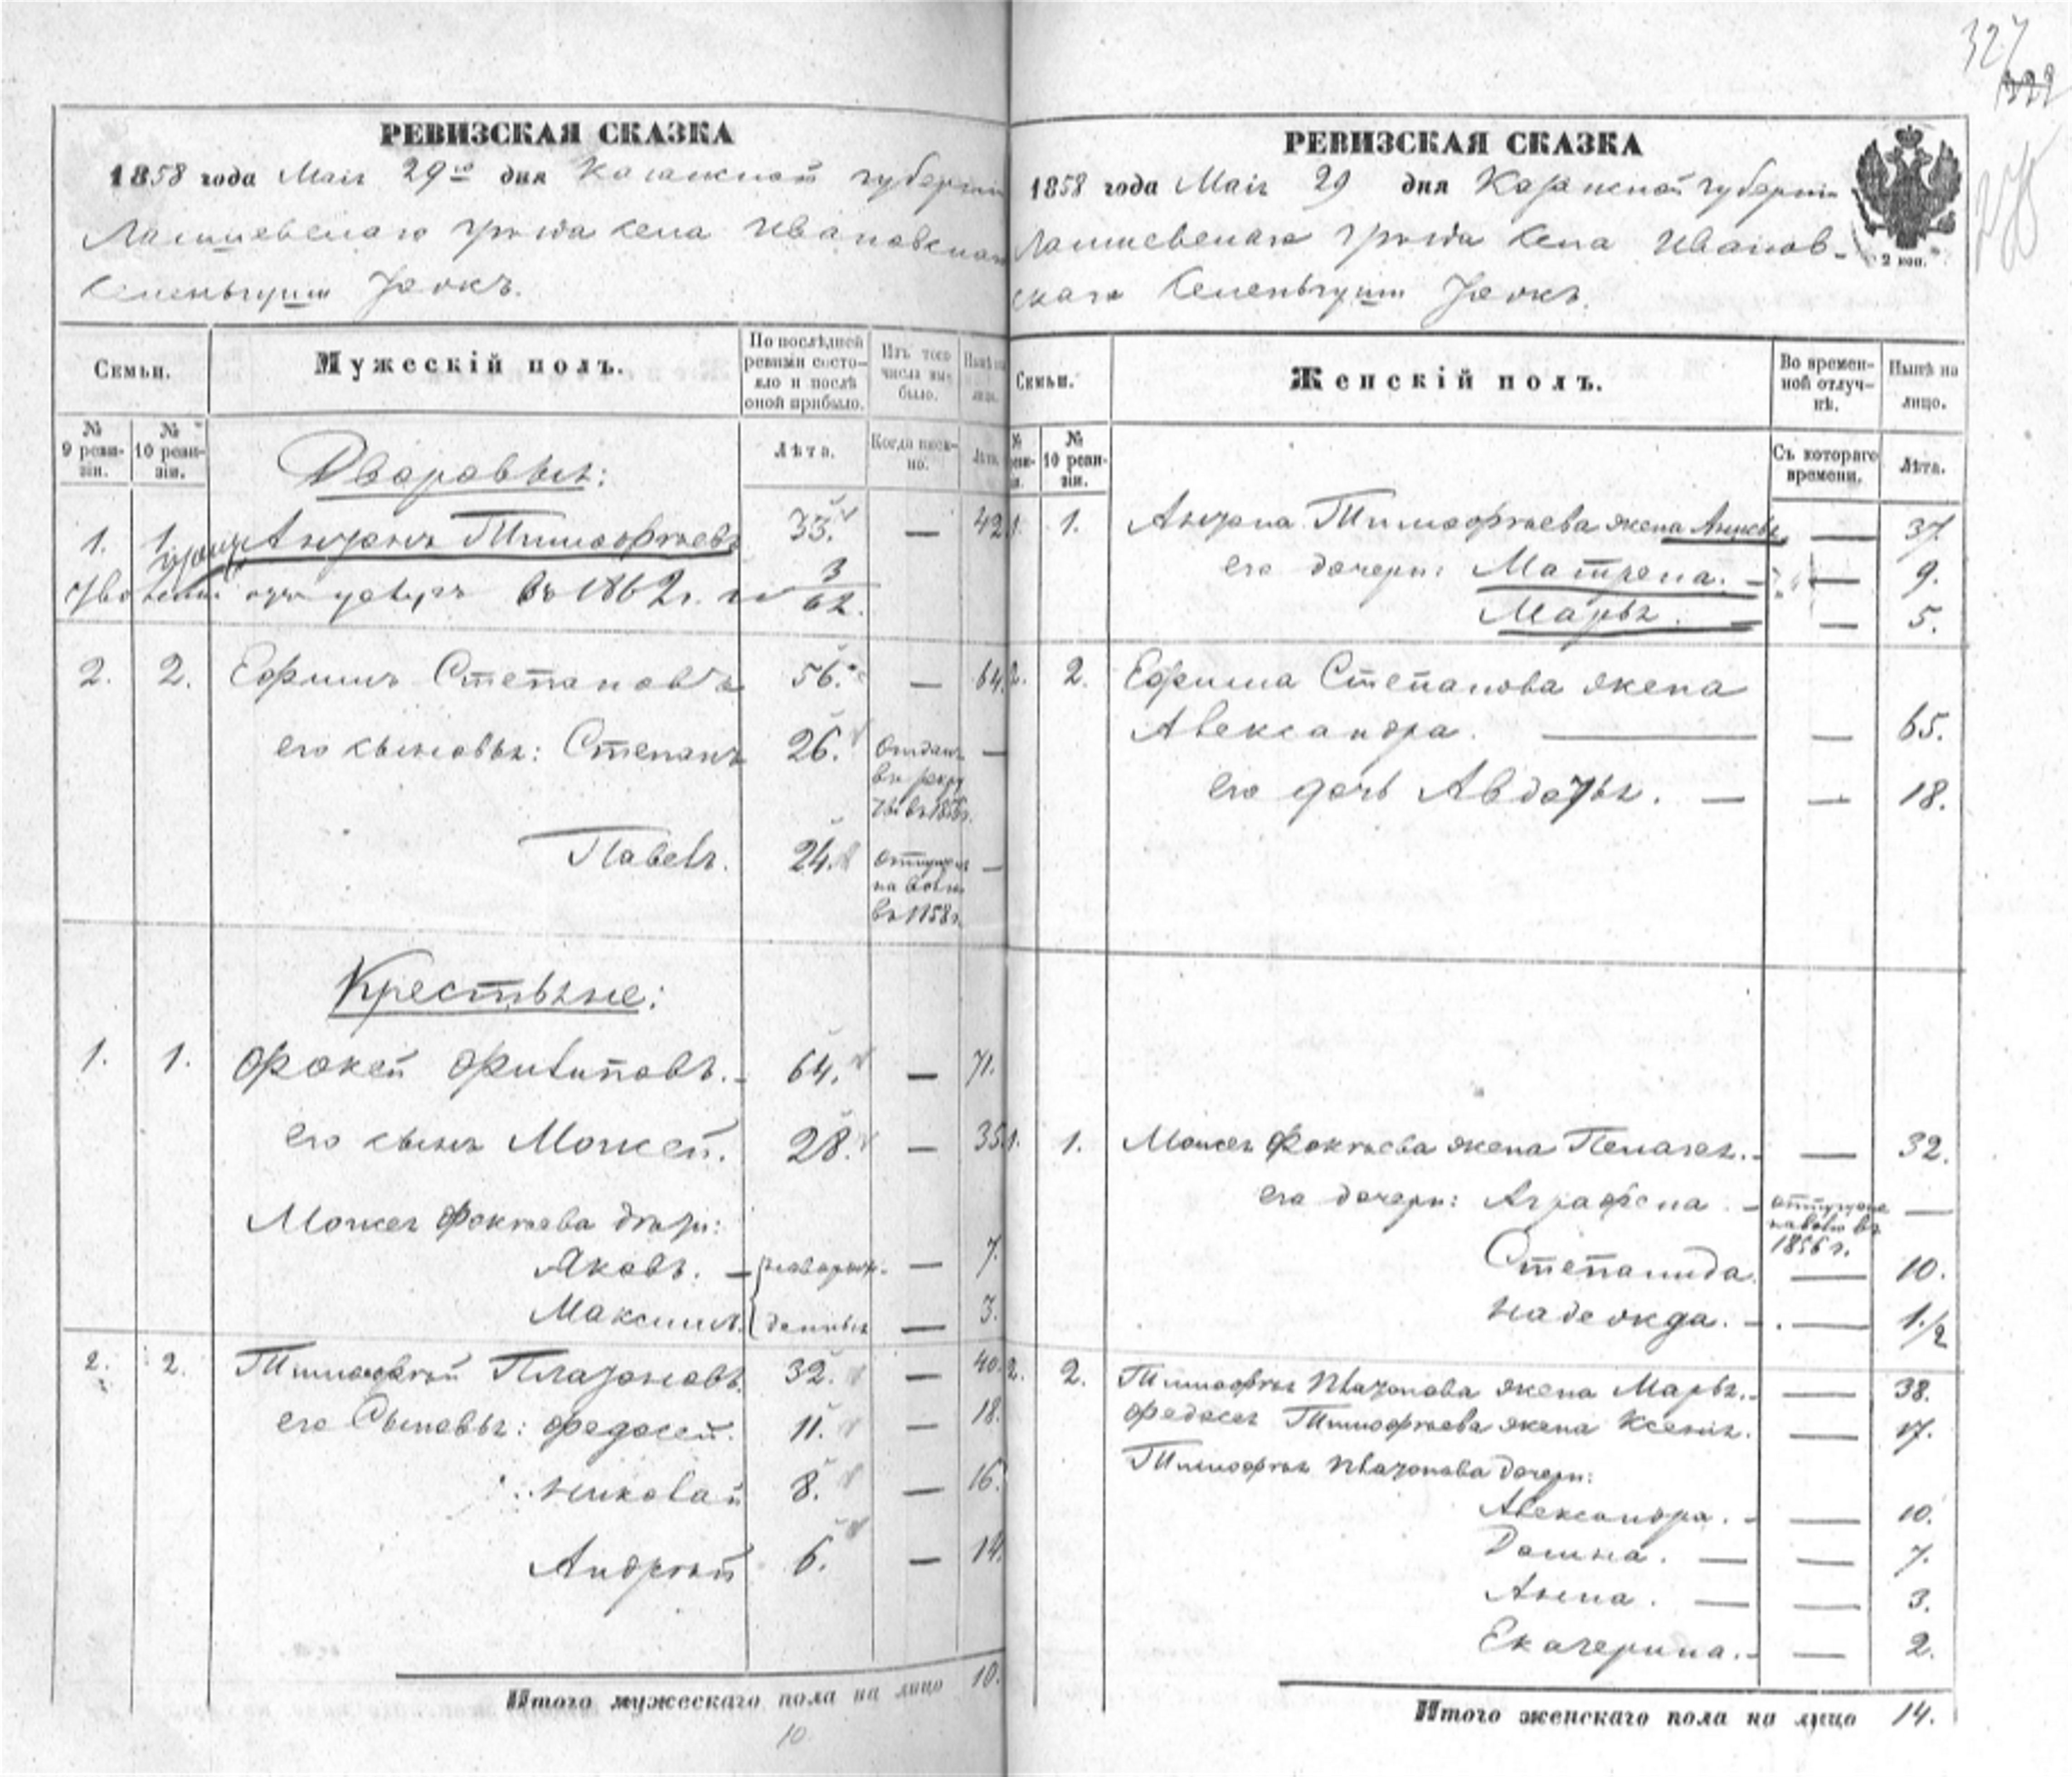 327
322
РЕВИЗСКАЯ СКАЗКА
1858 года Маія 29го дня Казанской губерніи
Лаишевскаго уѣзда села Ивановскаго
Селенгуши тожъ.
Семьи.
Мужескій полъ.
По послѣдней ревизіи состояло и послѣ оной прибыло.
Изъ того числа выбыло.
Нынѣ на лицо.
№ 9 ревизіи.
№ 10 ревизіи.
Дворовые:
Лѣта.
Когда именно.
Лѣта.
1. 1. Антонъ Тимофѣевъ 33. — 42
въ 1862 г. 3/62.
2. 2. Ефимъ Степановъ 56. — 64.
его сыновья: Степанъ 26. Отданъ въ рекруты —
Павелъ. 24. отпущенъ на волю въ 1858 г. —
Крестьяне:
1. 1. Фокей Филиповъ. 64. — 71.
его сынъ Моисей. 28. — 35.
Моисея Фокѣева дѣти:
Яковъ. — новорож- — 7.
Максимъ. денные — 3.
2. 2. Тимофѣй Платоновъ. 32. — 40.
его Сыновья: Федосей. 11. — 18.
Николай 8. — 16.
Андрей 6. — 14.
Итого мужескаго пола на лицо 10.
10
РЕВИЗСКАЯ СКАЗКА
1858 года Маія 29 дня Казанской губерніи
Лаишевскаго уѣзда села Иванов-
скаго Селенгуши тожъ.
2 коп.
Семьи.
Женскій полъ.
Во временной отлучкѣ.
Нынѣ на лицо.
№ 10 ревизіи.
Съ котораго времени.
Лѣта.
1. 1. Антона Тимофѣева жена — 37.
его дочери: Матрена. — 9.
Марья. — 5.
2. 2. Ефима Степанова жена
Александра. — 65.
его дочь Авдотья. — — 18.
1. 1. Моисея Фокѣева жена Пелагея. — 32.
его дочери: Аграфена. — отпущена на волю въ 1856 г. —
Степанида. — 10.
Надежда. — 1/2
2. 2. Тимофѣя Платонова жена Марья. — 38.
Федосея Тимофѣева жена Ксенія. — 17.
Тимофѣя Платонова дочери:
Александра. — 10.
Домна. — — 7.
Анна. — — 3.
Екатерина. — 2.
Итого женскаго пола на лицо 14.